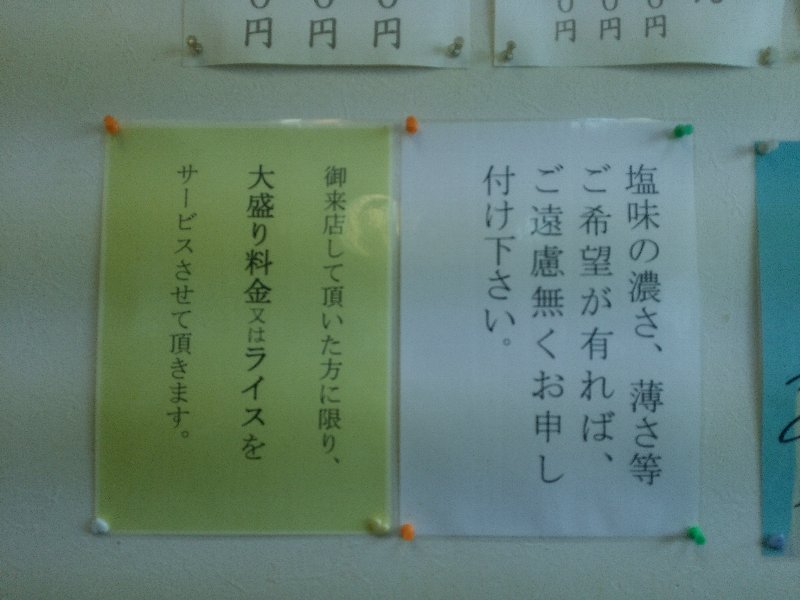 ０円
０円
０円
０円
０円
０円
円
塩味の濃さ、薄さ等
ご希望が有れば、
ご遠慮無くお申し
付け下さい。
御来店して頂いた方に限り、
大盛り料金又はライスを
サービスさせて頂きます。